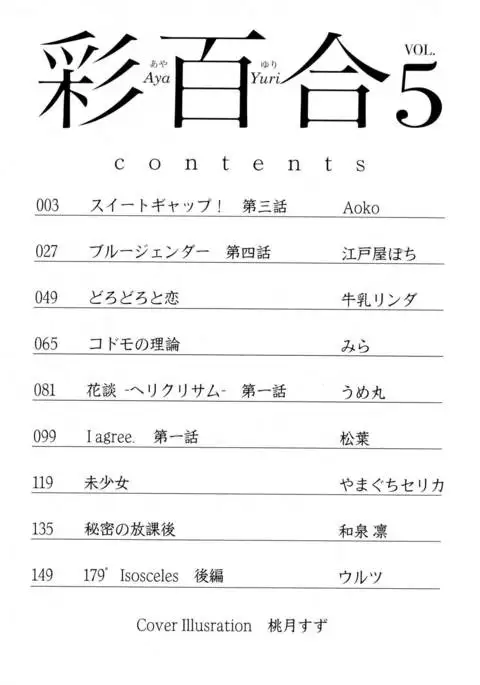 彩百合 VOL. 5
あや Aya ゆり Yuri
contents
003 スイートギャップ！ 第三話 Aoko
027 ブルージェンダー 第四話 江戸屋ぽち
049 どろどろと恋 牛乳リンダ
065 コドモの理論 みら
081 花談 -ヘリクリサム- 第一話 うめ丸
099 I agree. 第一話 松葉
119 未少女 やまぐちセリカ
135 秘密の放課後 和泉 凛
149 179° Isosceles 後編 ウルツ
Cover Illusration 桃月すず